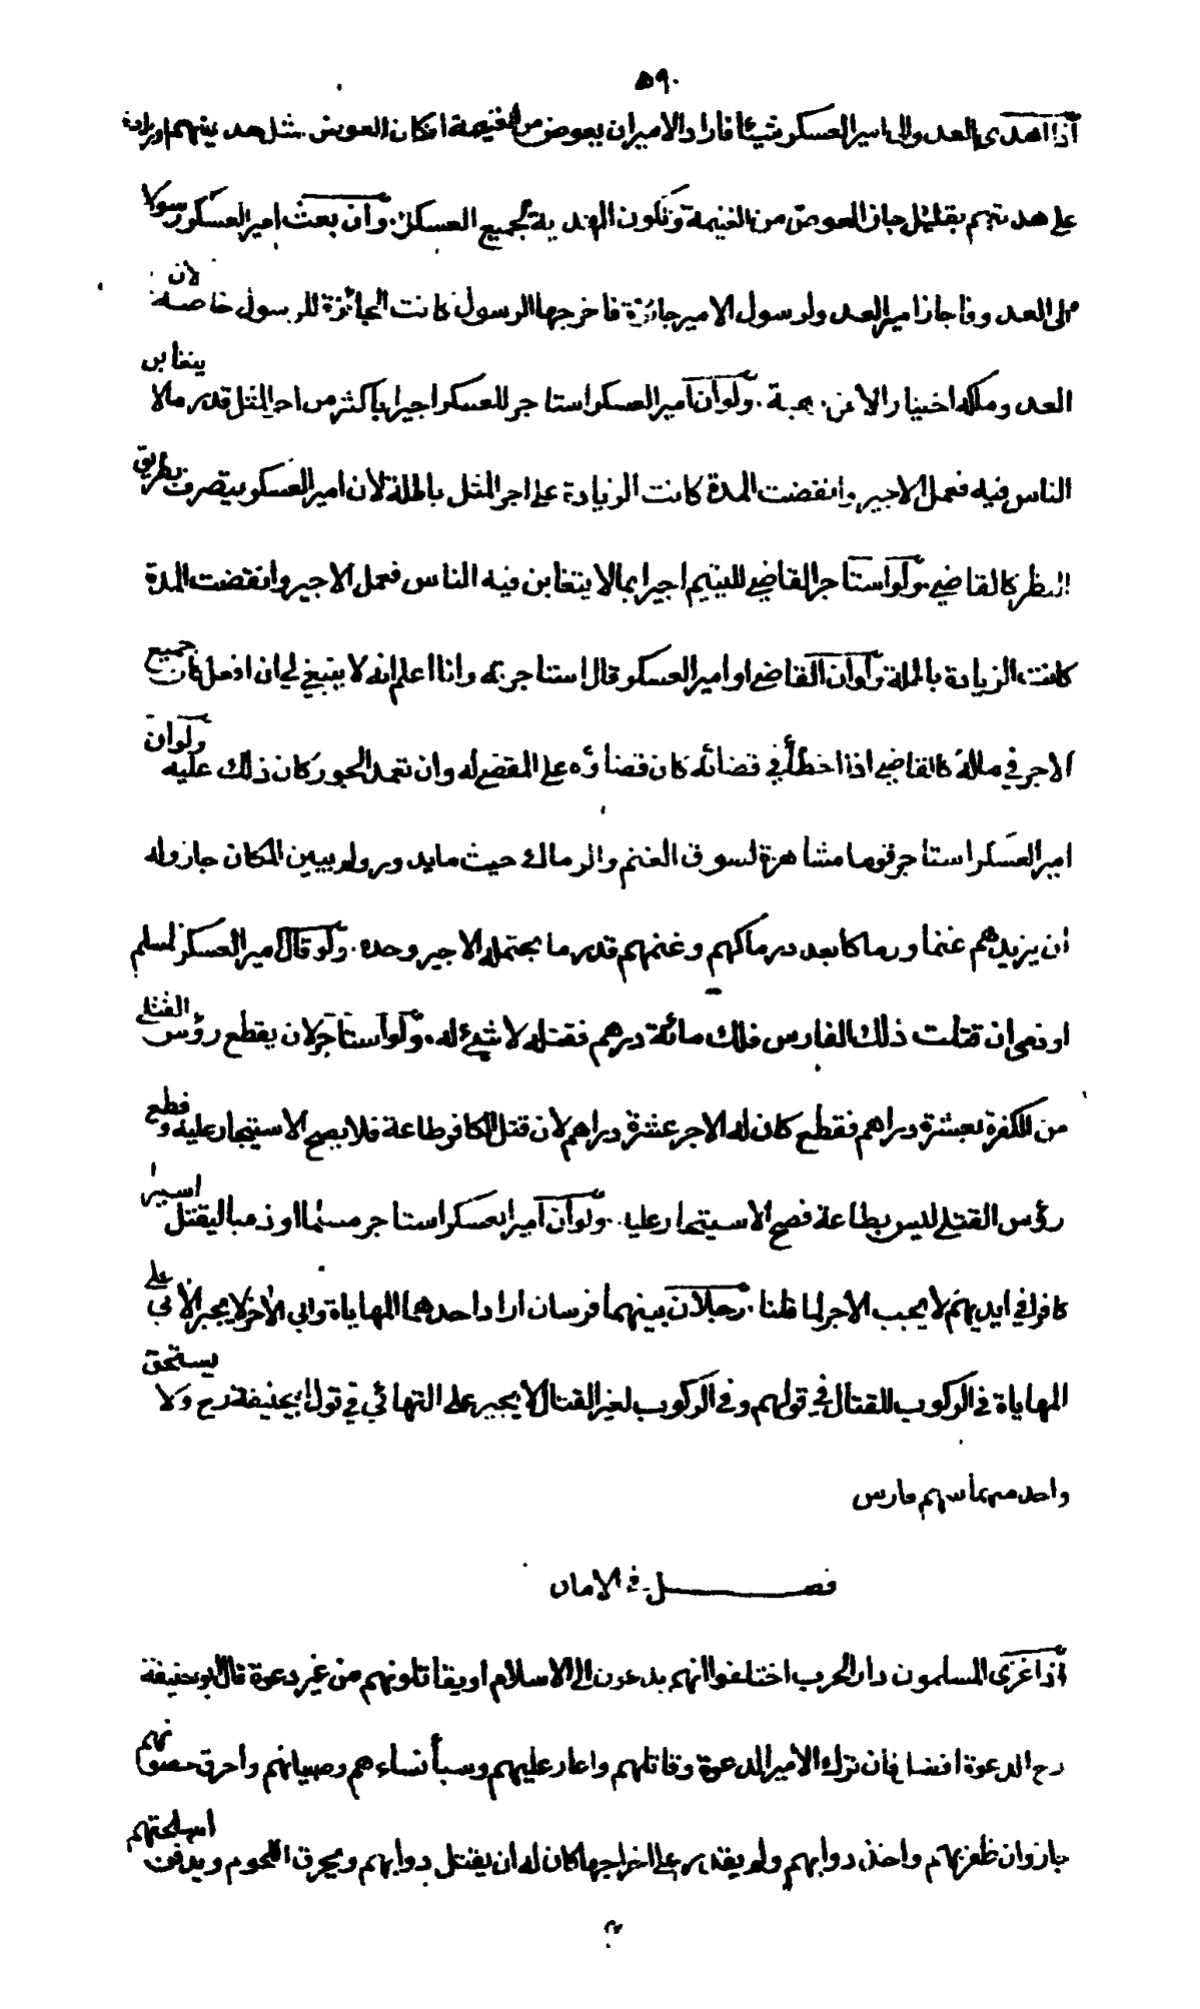 ٥٩٠
اذا اهدى العدو الى امير العسكر شيئا فاراد الامير ان يعوض من الغنيمة ان كان العوض مثل هديتهم او زيادة
على هديتهم بقليل جاز العوض من الغنيمة وتكون الهدية لجميع العسكر وان بعث امير العسكر رسولا
الى العدو فاجاز امير العدو لرسول الامير جائزة فاخرجها الرسول كانت الجائزة للرسول خاصة لان
العدو ملكه اختيارا لا عن وهبة ولو ان امير العسكر استاجر للعسكر اجيرا باكثر من اجر المثل قدر ما لا يتغابن
الناس فيه فعمل الاجير وانقضت المدة كانت الزيادة على اجر المثل باطلة لان امير العسكر يتصرف بطريق
النظر كالقاضي ولو استاجر القاضي لليتيم اجيرا بما لا يتغابن فيه الناس فعمل الاجير وانقضت المدة
كانت الزيادة باطلة ولو ان القاضي او امير العسكر قال استاجرته وانا اعلم انه لا ينبغي لي ان افعل كان جميع
الاجر في ماله كالقاضي اذا اخطأ في قضائه كان قضاؤه على المقضي له وان تعمد الجور كان ذلك عليه ولو ان
امير العسكر استاجر قوما مشاهرة لسوق الغنم والرماك حيث ما يدور ولم يبين المكان جاز وله
ان يزيدهم غنما ورماكا بعد رماكهم وغنمهم قدر ما يحتمله الاجير وحده ولو قال امير العسكر لمسلم
او ذمي ان قتلت ذلك الفارس فلك مائة درهم فقتله لا شيئ له ولو استاجر لان يقطع رؤس القتلى
من الكفرة بعشرة دراهم فقطع كان له الاجر عشرة دراهم لان قتل الكافر طاعة فلا يصح الاستيجار عليه وقطع
رؤس القتلى ليس بطاعة فصح الاستيجار عليه ولو ان امير العسكر استاجر مسلما او ذميا ليقتل اسيرا
كافرا في ايديهم لا يجب الاجر لما قلنا رجلان بينهما فرسان اراد احدهما المهاياة وابى الاخر لا يجبر الابي على
المهاياة في الركوب للقتال في قولهم وفي الركوب لغير القتال لا يجبر على التهائي في قول ابيحنيفة رح ولا يستحق
واحد منهما سهم فارس
فصل في الامان
اذا غزى المسلمون دار الحرب اختلفوا انهم يدعون الى الاسلام او يقاتلونهم من غير دعوة قال ابو حنيفة
رح الدعوة افضل فان ترك الامير الدعوة وقاتلهم واغار عليهم وسبأ نساءهم وصبيانهم واحرق حصونهم
جاز وان ظفر بهم واخذ دوابهم ولم يقدر على اخراجها كان له ان يقتل دوابهم ويحرق اللحوم ويدفن اسلحتهم